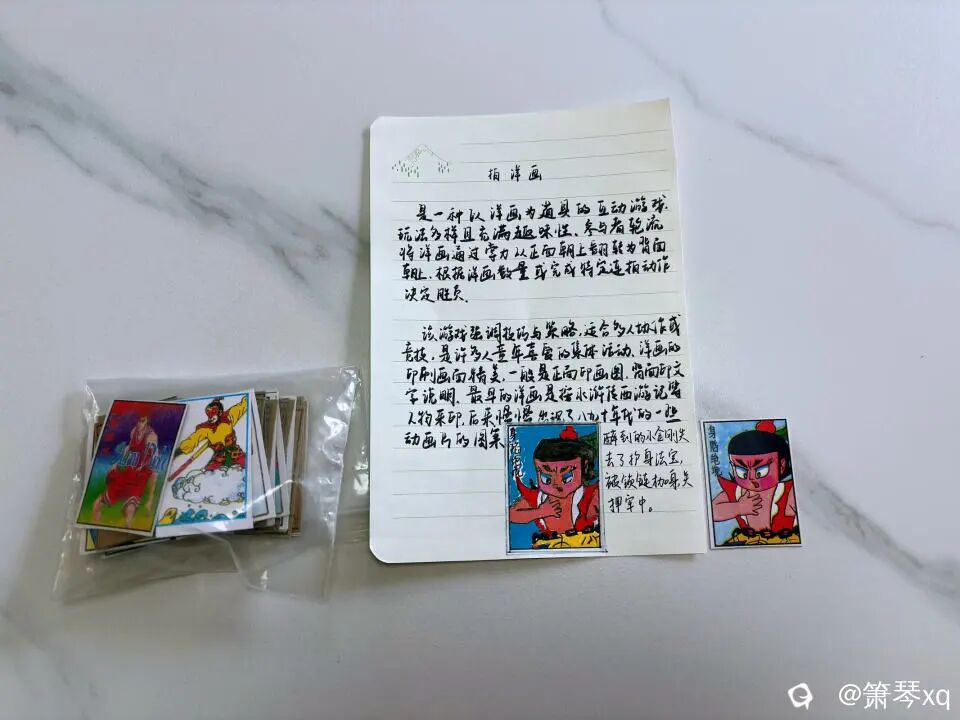 拍洋画
是一种以洋画为道具的互动游戏
玩法多样且充满趣味性、参与者轮流
将洋画通过掌力从正面朝上翻转为背面
朝上,根据洋画数量或完成特定连拍动作
决定胜负。
该游戏强调技巧与策略,适合多人协作或
竞技,是许多人童年喜爱的集体活动、洋画的
印刷画面精美,一般是正面印画图,背面印文
字说明、最早的洋画是按水浒传西游记等
人物来印,后来慢慢出现了八九十年代的一些
动画片的图案
醉到的小金刚失
去了护身法宝,
被锁链枷身关
押牢中。
身陷绝境
@箫琴xq